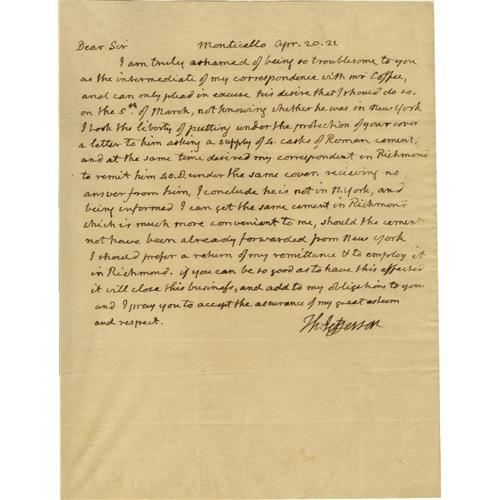 Dear Sir Monticello Apr. 20. 21
I am truly ashamed of being so troublesome to you
as the intermediate of my correspondence with mr Coffee,
and can only plead in excuse his desire that I should do so.
on the 5th of March, not knowing whether he was in New York
I took the liberty of putting under the protection of your cover
a letter to him asking a supply of 4. casks of Roman cement,
and at the same time desired my correspondent in Richmond
to remit him 40.D. under the same cover. recieving no
answer from him, I conclude he is not in N. York, and
being informed I can get the same cement in Richmond
which is much more convenient to me, should the cement
not have been already forwarded from New York
I should prefer a return of my remittance & to employ it
in Richmond. if you can be so good as to have this effected
it will close this business, and add to my obligations to you
and I pray you to accept the assurance of my great esteem
and respect. Th: Jefferson